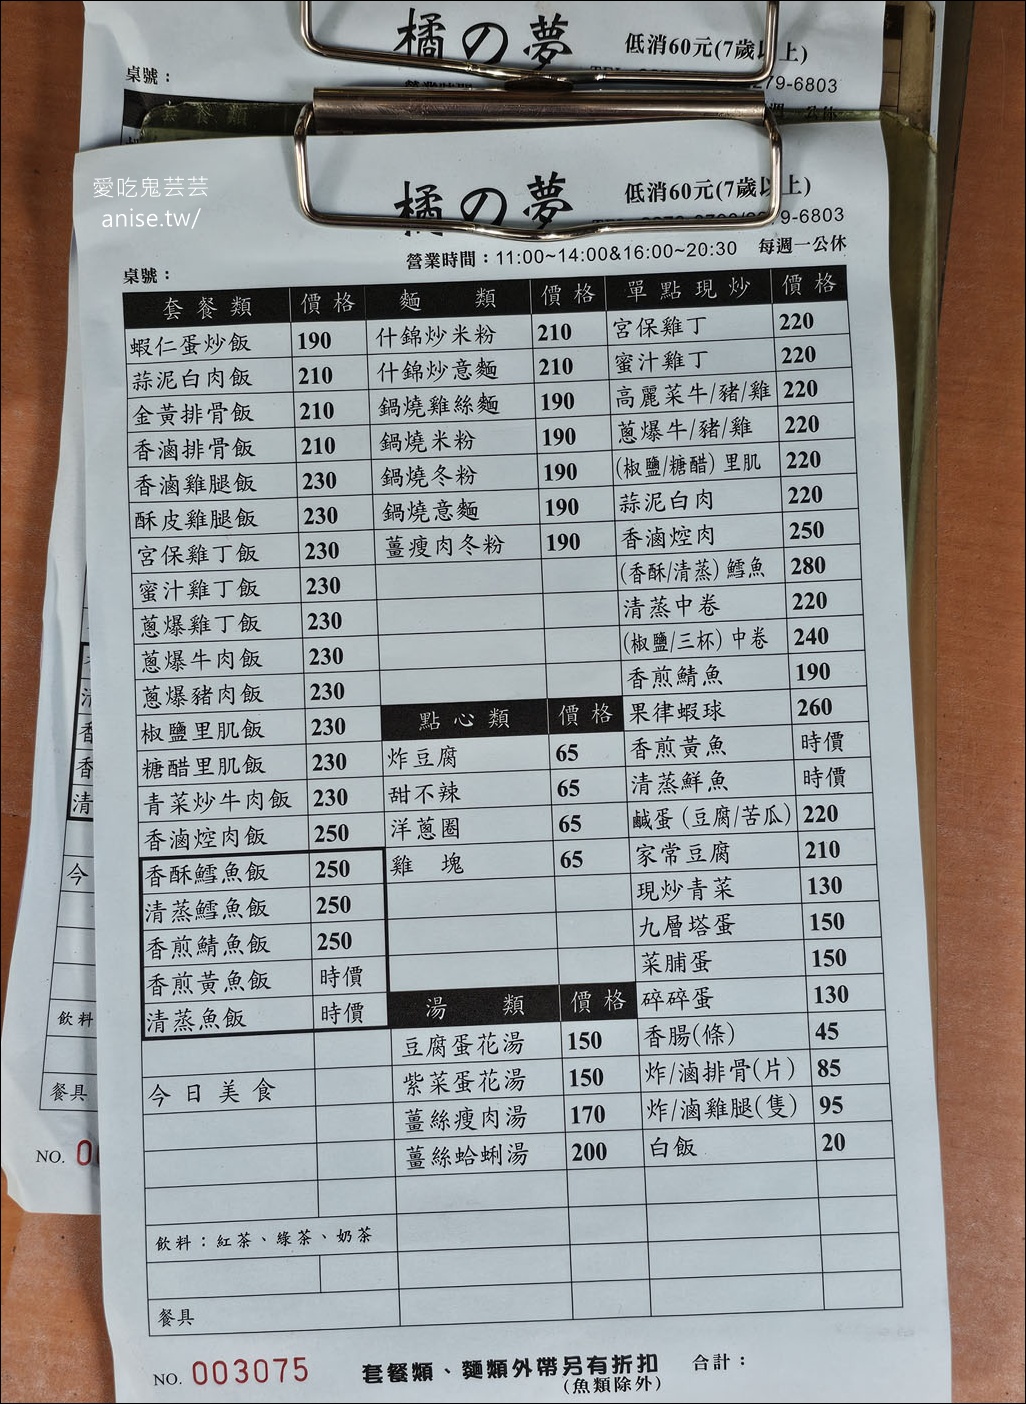 橘の夢
低消60元(7歲以上)
桌號：
279-6803
套餐類
愛吃鬼芸芸
anise.tw/
橘の夢
低消60元(7歲以上)
9-6803
營業時間：11:00~14:00&16:00~20:30 每週一公休
桌號：
套餐類 價格 麵類 價格 單點現炒 價格
蝦仁蛋炒飯 190 什錦炒米粉 210 宮保雞丁 220
蒜泥白肉飯 210 什錦炒意麵 210 蜜汁雞丁 220
金黃排骨飯 210 鍋燒雞絲麵 190 高麗菜牛/豬/雞 220
香滷排骨飯 210 鍋燒米粉 190 蔥爆牛/豬/雞 220
香滷雞腿飯 230 鍋燒冬粉 190 (椒鹽/糖醋) 里肌 220
酥皮雞腿飯 230 鍋燒意麵 190 蒜泥白肉 220
宮保雞丁飯 230 薑瘦肉冬粉 190 香滷焢肉 250
蜜汁雞丁飯 230 (香酥/清蒸) 鱈魚 280
蔥爆雞丁飯 230 清蒸中卷 220
蔥爆牛肉飯 230 (椒鹽/三杯) 中卷 240
蔥爆豬肉飯 230 香煎鯖魚 190
椒鹽里肌飯 230 點心類 價格 果律蝦球 260
糖醋里肌飯 230 炸豆腐 65 香煎黃魚 時價
青菜炒牛肉飯 230 甜不辣 65 清蒸鮮魚 時價
香滷焢肉飯 250 洋蔥圈 65 鹹蛋 (豆腐/苦瓜) 220
香酥鱈魚飯 250 雞塊 65 家常豆腐 210
清蒸鱈魚飯 250 現炒青菜 130
香煎鯖魚飯 250 九層塔蛋 150
香煎黃魚飯 時價 菜脯蛋 150
清蒸魚飯 時價 湯類 價格 碎碎蛋 130
豆腐蛋花湯 150 香腸(條) 45
今日美食 紫菜蛋花湯 150 炸/滷排骨(片) 85
薑絲瘦肉湯 170 炸/滷雞腿(隻) 95
薑絲蛤蜊湯 200 白飯 20
飲料：紅茶、綠茶、奶茶
餐具
NO. 003075 套餐類、麵類外帶另有折扣 合計：
(魚類除外)
清
香
香
清
今
飲料
餐具
NO. 0